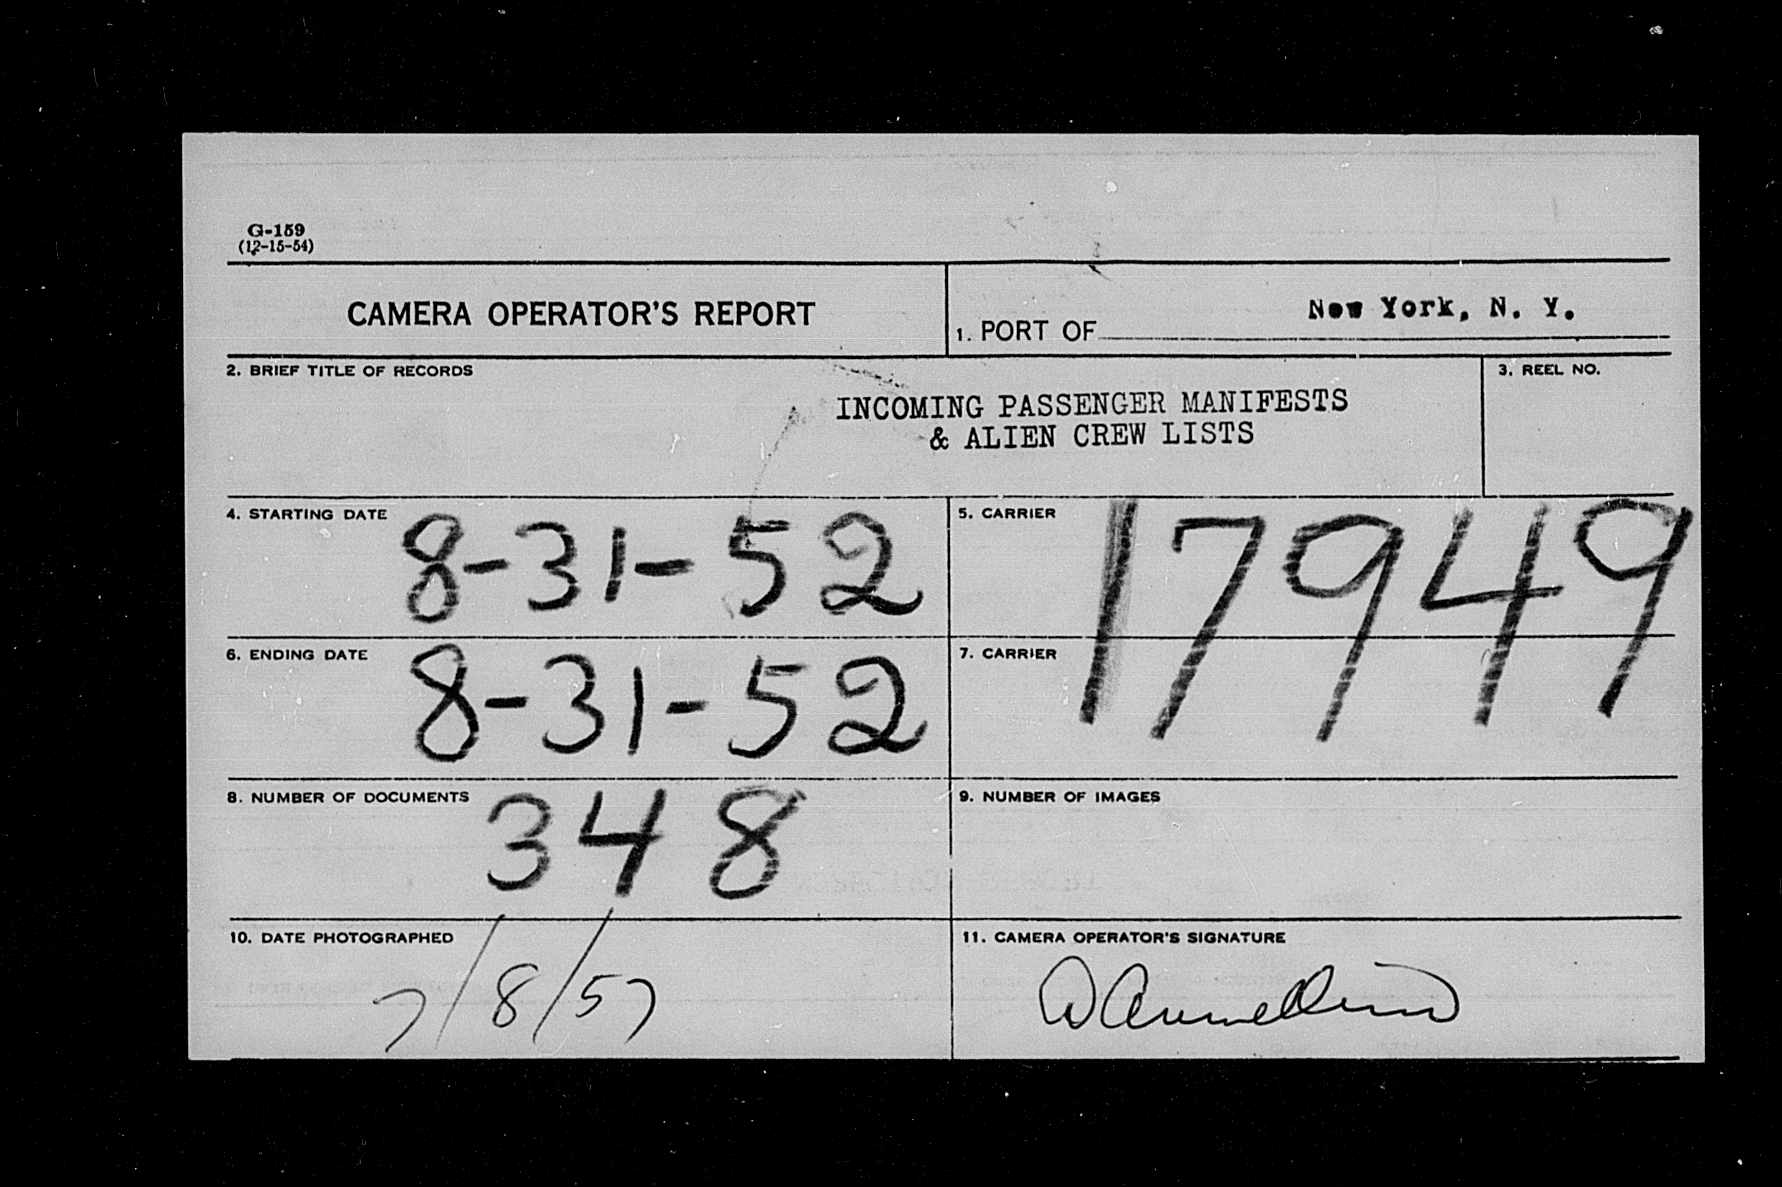 G-159
(12-15-54)
CAMERA OPERATOR'S REPORT
1. PORT OF New York, N. Y.
2. BRIEF TITLE OF RECORDS
INCOMING PASSENGER MANIFESTS
& ALIEN CREW LISTS
3. REEL NO.
4. STARTING DATE 8-31-52
5. CARRIER 17949
6. ENDING DATE 8-31-52
7. CARRIER
8. NUMBER OF DOCUMENTS 348
9. NUMBER OF IMAGES
10. DATE PHOTOGRAPHED
7/8/57
11. CAMERA OPERATOR'S SIGNATURE